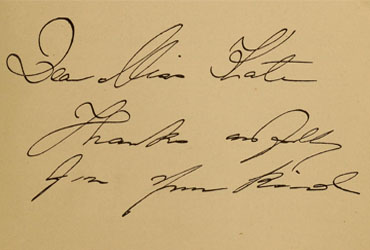 Dear Miss Kate
Thanks awfully
for your kind